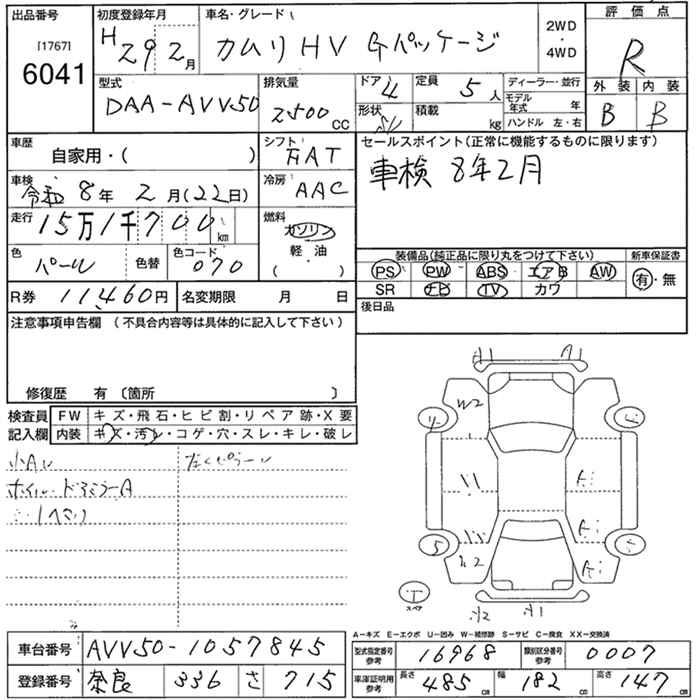 出品番号
[1767]
6041
初度登録年月
H 29 2月
車名・グレード
カムリHV Gパッケージ
2WD
・
4WD
評価点
R
外装 内装
B B
型式
DAA-AVV50
排気量
2500 CC
ドア 4
形状
定員 5人
積載 kg
ディーラー・並行
モデル年式 年
ハンドル 左・右
車歴
自家用・( )
シフト
AT
セールスポイント(正常に機能するものに限ります)
車検 8年2月
車検
令和 8年 2月(22日)
冷房
AAC
走行
15万1千700km
燃料
ガソリン
軽・油
( )
色
パール
色替
色コード
070
装備品(純正品に限り丸をつけて下さい)
新車保証書
PS PW ABS エアB AW
SR ナビ TV カワ
有・無
R券 11460円
名変期限 月 日
後日品
注意事項申告欄 (不具合内容等は具体的に記入して下さい)
修復歴 有〔箇所 〕
検査員記入欄
FW キズ・飛石・ヒビ割・リペア跡・X要
内装 キズ・汚レ・コゲ・穴・スレ・キレ・破レ
ホイル・ドアミラーA
A1 A1
W2
4
5
A1
A1
A1
T
スペア
A1
A−キズ E−エクボ U−凹み W−補修跡 S−サビ C−腐食 XX−交換済
車台番号 AVV50-1057845
登録番号 奈良 336 さ 715
型式指定番号 参考 16968
類別区分番号 参考 0007
車庫証明用 参考 長さ 485cm 幅 182cm 高さ 147cm